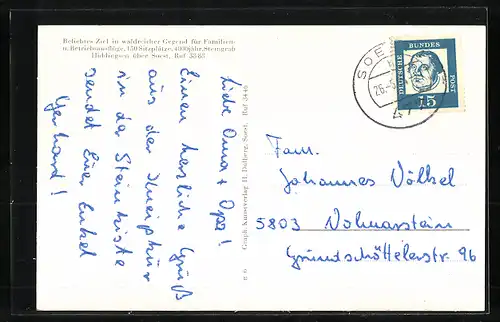 Beliebtes Ziel in waldreicher Gegend für Familien-
u. Betriebsausflüge, 150 Sitzplätze, 4000jähr. Steingrab
Hiddingsen über Soest, Ruf 33 65
Liebe Oma + Opa!
Einen herzliche Gruß
aus der Kneipkur
in der Steinkiste
sendet Euer Enkel
Gerhard!
Graph. Kunstverlag H. Dolberg, Soest, Ruf 34 46
SOEST
DEUTSCHE BUNDESPOST
15
Fam.
Johannes Völkel
5803 Volmarstein
Grundschöttelerstr 96